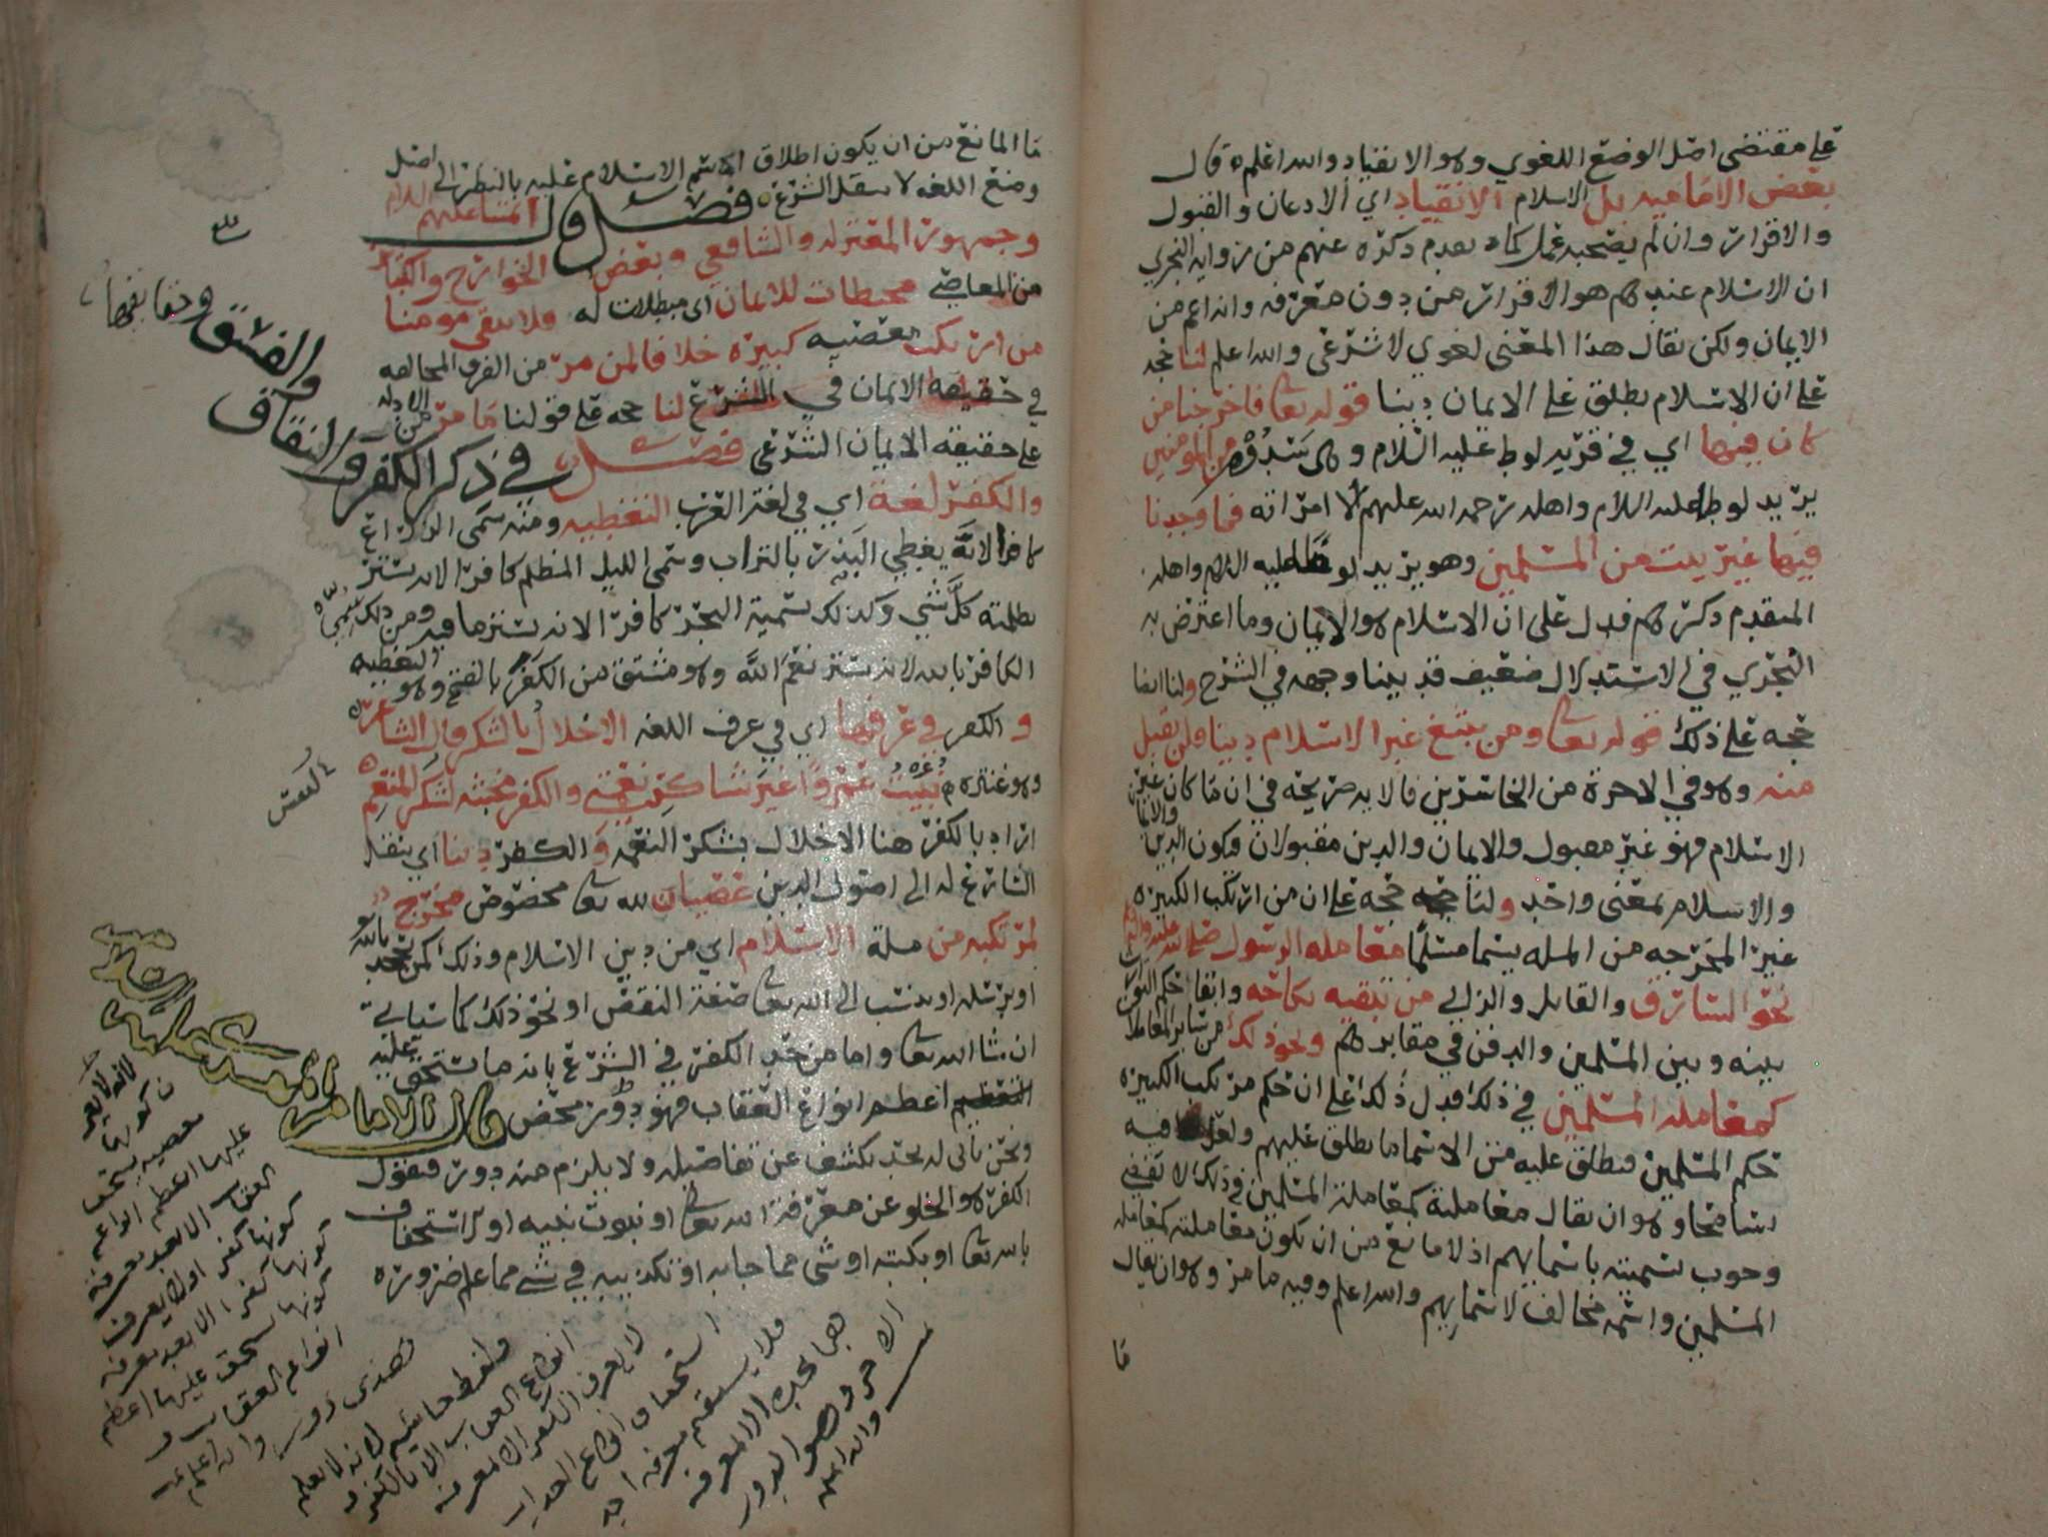 على مقتضى اصل الوضع اللغوي وهو الانقياد والله اعلم قال
بعض الاماميه بل الاسلام الانقياد اي الاذعان والقبول
والاقرار وان لم يصحبه عمل كما تقدم ذكره عنهم من روايه النجري
ان الاسلام عندهم هو الاقرار من دون معرفه وانه اعم من
الايمان ولكن يقال هذا المعنى لغوي لا شرعي والله اعلم لنا حجه
على ان الاسلام يطلق على الايمان دينا قوله تعالى فاخرجنا من
كان فيها اي في قريه لوط عليه السلام وهي سدوم من المومنين
يريد لوطا عليه السلام واهله رحمه الله عليهم الا امراته فما وجدنا
فيها غير بيت من المسلمين وهو يريد لوطا عليه السلام واهله
المتقدم ذكرهم فدل على ان الاسلام هو الايمان وما اعترض به
النجري في الاستدلال ضعيف قد بينا وجهه في الشرح ولنا ايضا
حجه على ذلك قوله تعالى ومن يبتغ غير الاسلام دينا فلن يقبل
منه وهو في الاخرة من الخاسرين فالايه صريحه في ان ما كان غير
الاسلام فهو غير مقبول والايمان والدين مقبولان فيكون الدين والايمان
والاسلام بمعنى واحد ولنا حجه على ان من ارتكب الكبيره
غير المخرجه من المله يسما مسلما معامله الرسول صلى الله عليه واله
نحو السارق والقاتل والزاني من تبقيه نكاحه وابقا حكم التوارث
بينه وبين المسلمين والدفن في مقابرهم ونحو ذلك من سائر المعاملات
كمعامله المسلمين في ذلك فدل ذلك على ان حكم مرتكب الكبيره
حكم المسلمين فيطلق عليه من الاسما ما يطلق عليهم ولعل فيه
تسامحا وهو ان يقال معاملته كمعاملة المسلمين في ذلك لا تقتضي
وجوب تسميته باسمايهم اذ لا مانع من ان تكون معاملته كمعامله
المسلمين واسمه مخالف لاسمايهم والله اعلم وفيه ما مر وهو ان يقال
ما
ما المانع من ان يكون اطلاق اسم الاسلام عليه بالنظر الى اصل
وضع اللغه لا بنقل الشرع فصل قال ائمتنا عليهم السلام
وجمهور المعتزله والشافعي وبعض الخوارج والكبائر
من المعاصي محبطات للايمان اي مبطلات له فلا يبقى مومنا
من ارتكب معصيه كبيره خلافا لمن مر من الفرق المخالفه
في حقيقه الايمان في الشرع لنا حجه على قولنا ما مر من الادله
على حقيقه الايمان الشرعي فصل في ذكر الكفر والنفاق
والفسق وحقائقها
والكفر لغة اي في لغة العرب التغطيه ومنه سمى الزراع
كافرا لانه يغطي البذر بالتراب وسمى الليل المظلم كافرا لانه يستر
بظلمته كل شي وكذلك تسمية البحر كافرا لانه يستر ما فيه ومن ذلك سمي
الكافر بالله لانه يستر نعم الله وهو مشتق من الكفر بالفتح وهو التغطيه
والكفر في عرفها اي في عرف اللغه الاخلال بالشكر قال الشاعر
وهو عنتره نبيت عمروا غير شاكر نعمتي والكفر مخبثه لشكر المنعم
اراد بالكفر هنا الاخلال بشكر النعمه والكفر دينا اي بنقل
الشارع له الى اصول الدين عصيان لله تعالى مخصوص مخرج
لمرتكبه من ملة الاسلام اي من دين الاسلام وذلك كمن يجحد بالله
او برسله او ينسب الى الله تعالى صفة النقص او نحو ذلك كما سياتي
ان شا الله تعالى واما من حد الكفر في الشرع بانه ما يستحق عليه
اعظم انواع العقاب فهو دور محض قال الامام
ونحن ناتي له بحد يكشف عن تفاصيله ولا يلزم منه دور فنقول
الكفر هو الخلو عن معرفة الله تعالى او نبوت نبيه او الاستخفاف
بالله تعالى او بكتبه او شي مما جا به او تكذيبه في شي مما علم ضروره
لانه لا يعرف
كونها
معصيه يستحق
عليها اعظم انواع
العقاب الا بعد معرفة
كونها كفرا ولا يعرف
كونها كفرا الا بعد معرفه
كونها يستحق عليها اعظم
انواع العقاب
فهذا دور والله اعلم
ولفظ حاشيه لانه لا يعلم
انواع العقاب الا بالكفر و
لا يعرف الكفر الا بمعرفه
استحقاق انواع العذاب
فلا يستقيم معرفه احد
هما بحده الا بمعرفه
الاخر وهو الدور
والله اعلم